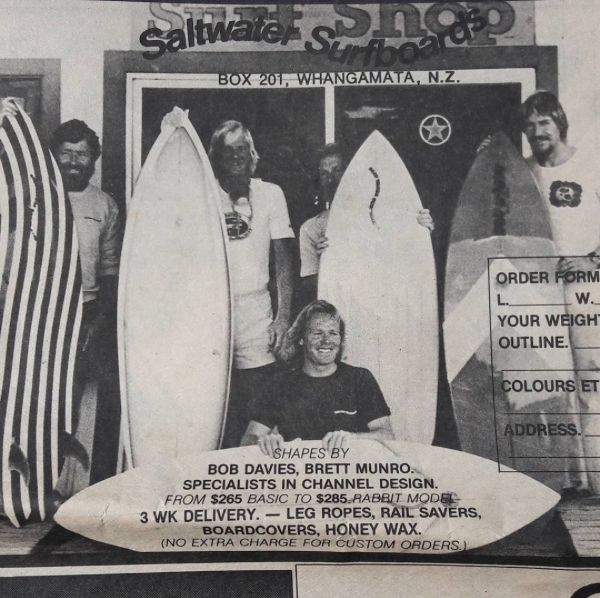 Surf Shop
Saltwater Surfboards
BOX 201, WHANGAMATA, N.Z.
ORDER FORM
L. W.
YOUR WEIGHT
OUTLINE.
COLOURS ET
ADDRESS.
SHAPES BY
BOB DAVIES, BRETT MUNRO.
SPECIALISTS IN CHANNEL DESIGN.
FROM $265 BASIC TO $285 RABBIT MODEL
3 WK DELIVERY. — LEG ROPES, RAIL SAVERS,
BOARDCOVERS, HONEY WAX.
(NO EXTRA CHARGE FOR CUSTOM ORDERS.)